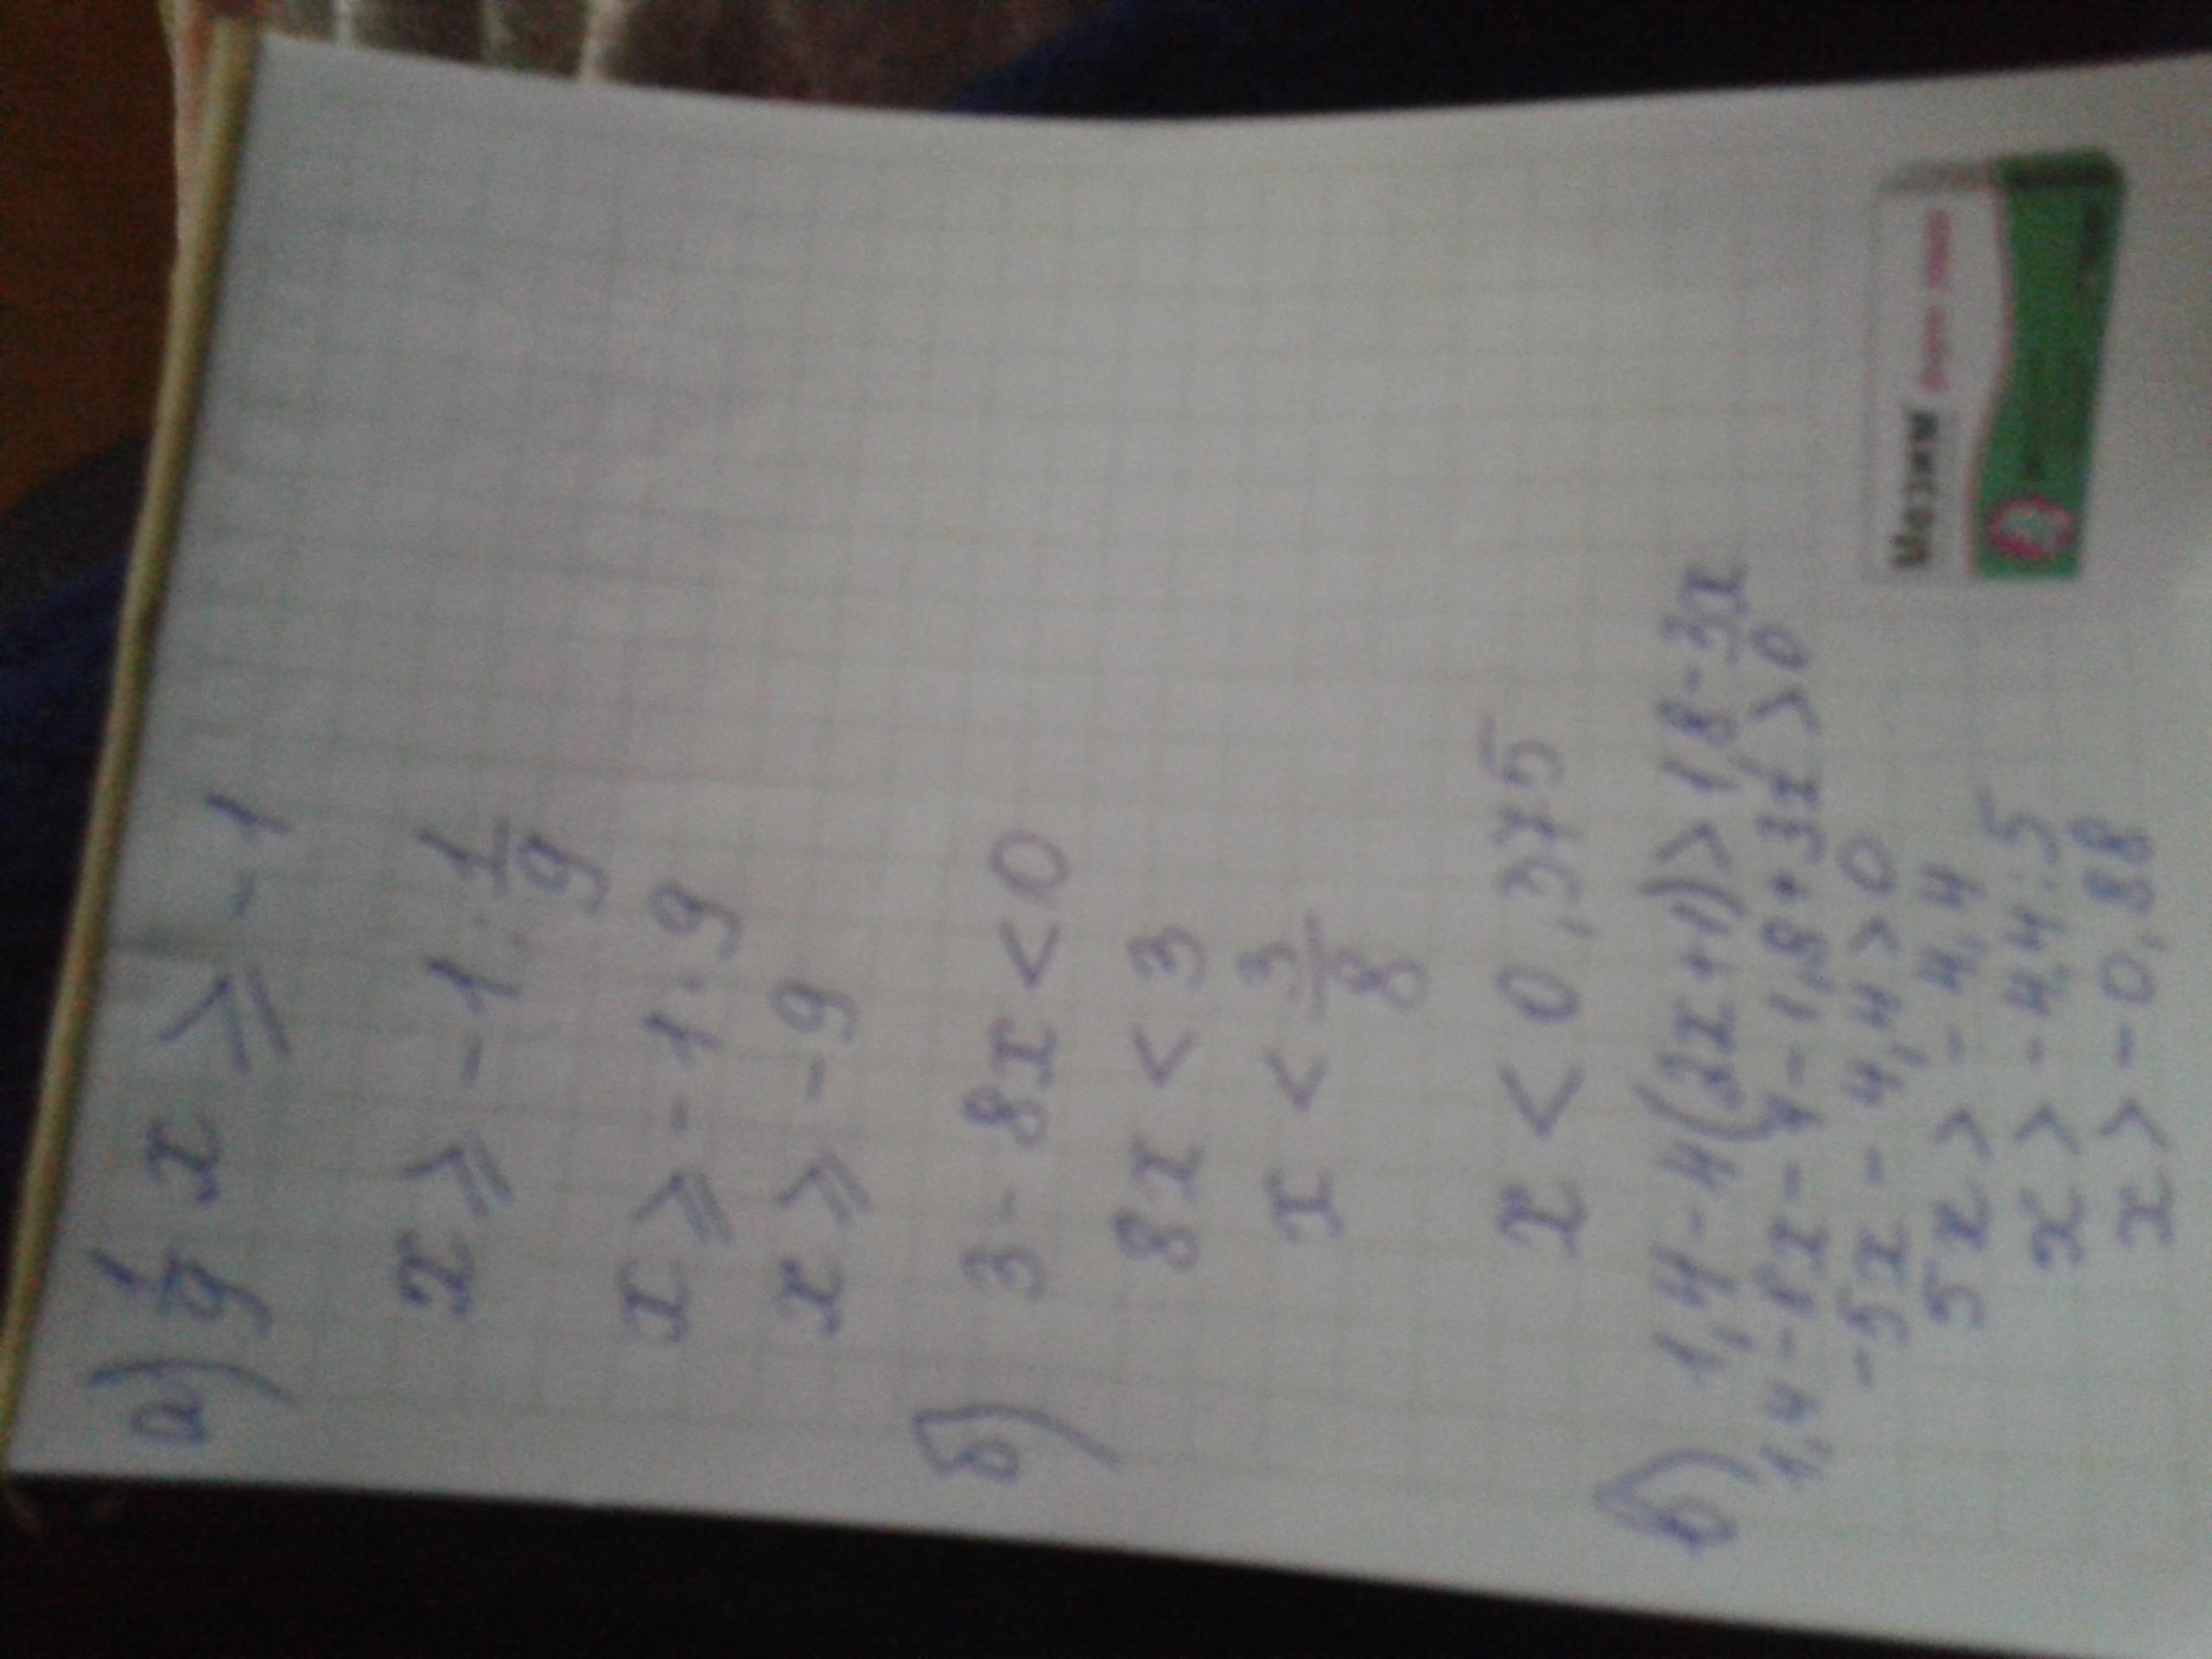 а) 1/9 x ⩾ -1
x ⩾ -1 : 1/9
x ⩾ -1 · 9
x ⩾ -9
б) 3 - 8x < 0
8x < 3
x < 3/8
x < 0,375
в) 1,4 - 4(2x+1) > 1,8 - 3x
1,4 - 8x - 4 - 1,8 + 3x > 0
-5x - 4,4 > 0
5x > -4,4
x > -4,4 : 5
x > -0,88
Мезим